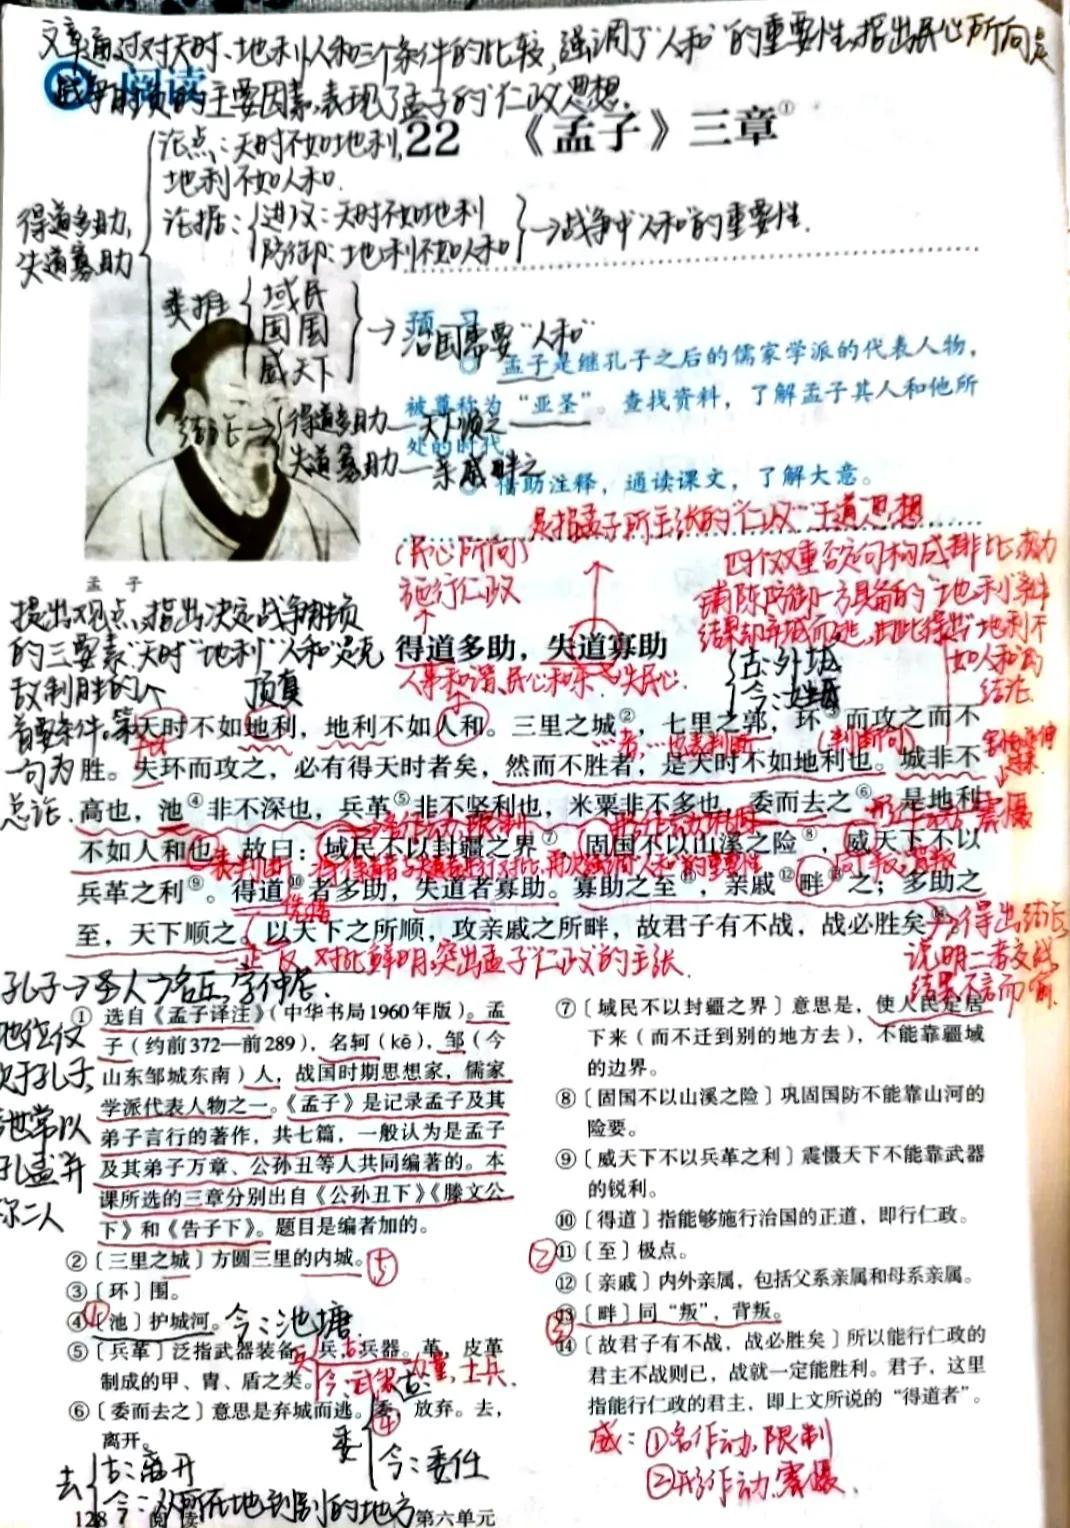 文章通过对天时、地利人和三个条件的比较,强调了"人和"的重要性,指出民心所向是
战争胜负的主要因素,表现了孟子的"仁政"思想.
阅读
22 《孟子》三章①
得道多助,
失道寡助
论点:天时不如地利,
地利不如人和.
论据:
进攻:天时不如地利
防御:地利不如人和
→战争中"人和"的重要性.
类推
域民
固国
威天下
→治国需要"人和"
结论→
得道多助—天下顺之
失道寡助—亲戚畔之
预 习
孟子是继孔子之后的儒家学派的代表人物,
被尊称为"亚圣"。查找资料,了解孟子其人和他所
处的时代。
借助注释,通读课文,了解大意。
孟 子
是指孟子所主张的"仁政""王道"思想
(民心所向)
施行仁政
四个双重否定句构成排比,极力
铺陈防御一方具备的"地利"条件
结果却弃城而逃,由此得出"地利不
如人和"的
结论.
提出观点,指出决定战争胜负
的三要素"天时""地利""人和"是克
敌制胜的
首要条件.第
一句为
总论.
顶真
得道多助,失道寡助
人事和谐、民心和乐.
失民心.
古:外城
今:姓氏
天时不如地利,地利不如人和。三里之城②,七里之郭,环③而攻之而不
胜。夫环而攻之,必有得天时者矣,然而不胜者,是天时不如地利也。城非不
高也,池④非不深也,兵革⑤非不坚利也,米粟非不多也,委而去之⑥,是地利
不如人和也。故曰:域民不以封疆之界⑦,固国不以山溪之险⑧,威天下不以
兵革之利⑨。得道⑩者多助,失道者寡助。寡助之至⑪,亲戚⑫畔⑬之;多助之
至,天下顺之。以天下之所顺,攻亲戚之所畔,故君子有不战,战必胜矣⑭。
表判断
得出结论,
说明二者交战
结果不言而喻.
一正一反,对比鲜明,突出孟子"仁政"的主张.
孔子→圣人→名丘,字仲尼.
地位仅
次于孔子,
世常以
孔孟并
称二人
① 选自《孟子译注》(中华书局1960年版)。孟
子(约前372—前289),名轲(kē),邹(今
山东邹城东南)人,战国时期思想家,儒家
学派代表人物之一。《孟子》是记录孟子及其
弟子言行的著作,共七篇,一般认为是孟子
及其弟子万章、公孙丑等人共同编著的。本
课所选的三章分别出自《公孙丑下》《滕文公
下》和《告子下》。题目是编者加的。
②〔三里之城〕方圆三里的内城。
③〔环〕围。
④〔池〕护城河。
今:池塘
⑤〔兵革〕泛指武器装备。兵,兵器。革,皮革
制成的甲、胄、盾之类。
⑥〔委而去之〕意思是弃城而逃。委,放弃。去,
离开。
委
今:委任
去
古:离开
今:从所在地到别的地方
⑦〔域民不以封疆之界〕意思是,使人民定居
下来(而不迁到别的地方去),不能靠疆域
的边界。
⑧〔固国不以山溪之险〕巩固国防不能靠山河的
险要。
⑨〔威天下不以兵革之利〕震慑天下不能靠武器
的锐利。
⑩〔得道〕指能够施行治国的正道,即行仁政。
⑪〔至〕极点。
⑫〔亲戚〕内外亲属,包括父系亲属和母系亲属。
⑬〔畔〕同"叛",背叛。
⑭〔故君子有不战,战必胜矣〕所以能行仁政的
君主不战则已,战就一定能胜利。君子,这里
指能行仁政的君主,即上文所说的"得道者"。
①名作动.限制
②形作动.震慑.
128 阅读 第六单元